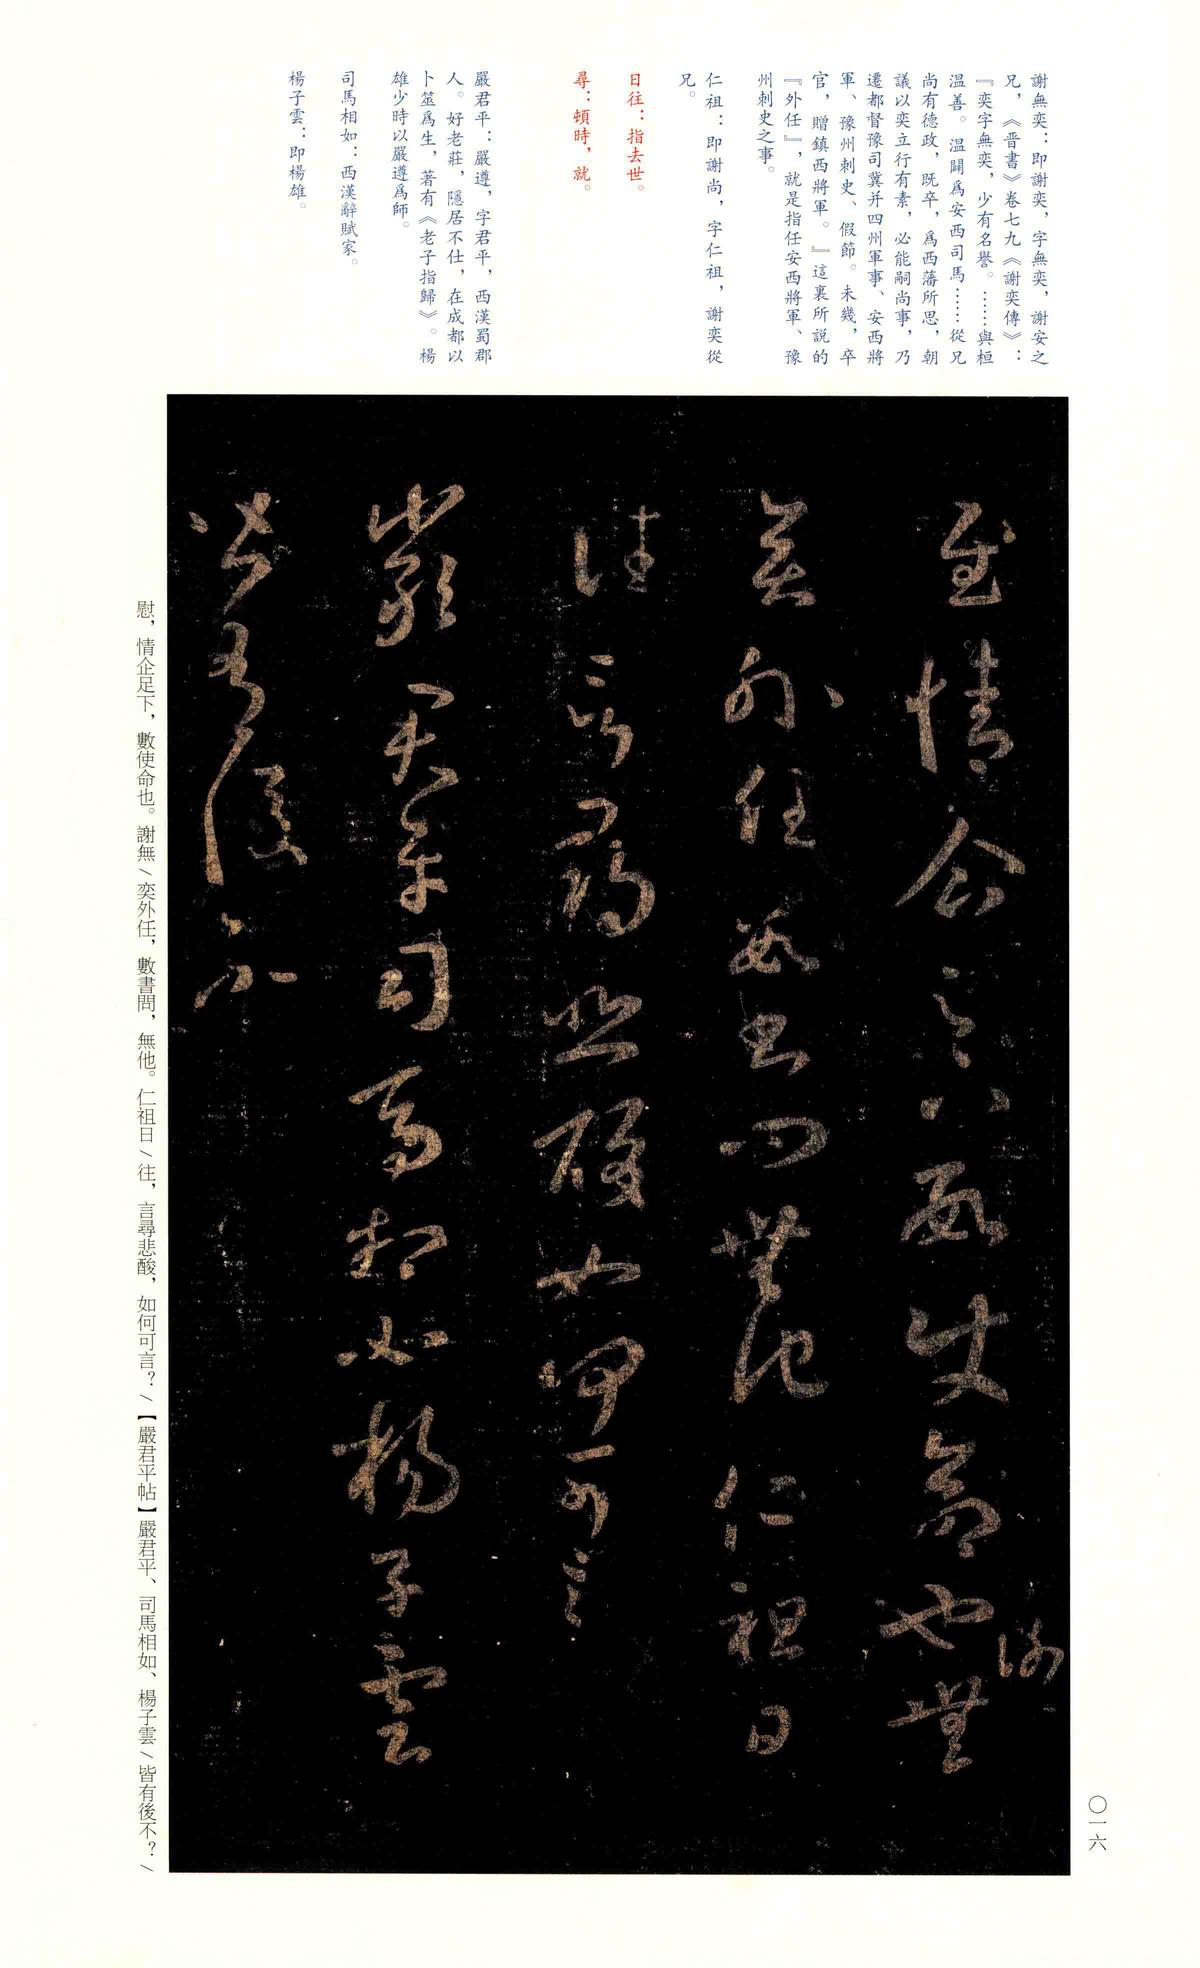 謝無奕：即謝奕，字無奕，謝安之
兄，《晉書》卷七九《謝奕傳》：
『奕字無奕，少有名譽。……與桓
溫善。溫闢爲安西司馬……從兄
尚有德政，既卒，爲西藩所思，朝
議以奕立行有素，必能嗣尚事，乃
遷都督豫司冀并四州軍事、安西將
軍、豫州刺史、假節。未幾，卒
官，贈鎮西將軍。』這裏所説的
『外任』，就是指任安西將軍、豫
州刺史之事。
仁祖：即謝尚，字仁祖，謝奕從
兄。
日往：指去世。
尋：頓時，就。
嚴君平：嚴遵，字君平，西漢蜀郡
人。好老莊，隱居不仕，在成都以
卜筮爲生，著有《老子指歸》。楊
雄少時以嚴遵爲師。
司馬相如：西漢辭賦家。
楊子雲：即楊雄。
慰情企足下數使命也謝無
奕外任數書問無他仁祖日
往言尋悲酸如何可言
嚴君平司馬相如楊子雲
皆有後不
慰，情企足下，數使命也。謝無\奕外任，數書問，無他。仁祖日\往，言尋悲酸，如何可言？\【嚴君平帖】嚴君平、司馬相如、楊子雲\皆有後不？\
〇一六